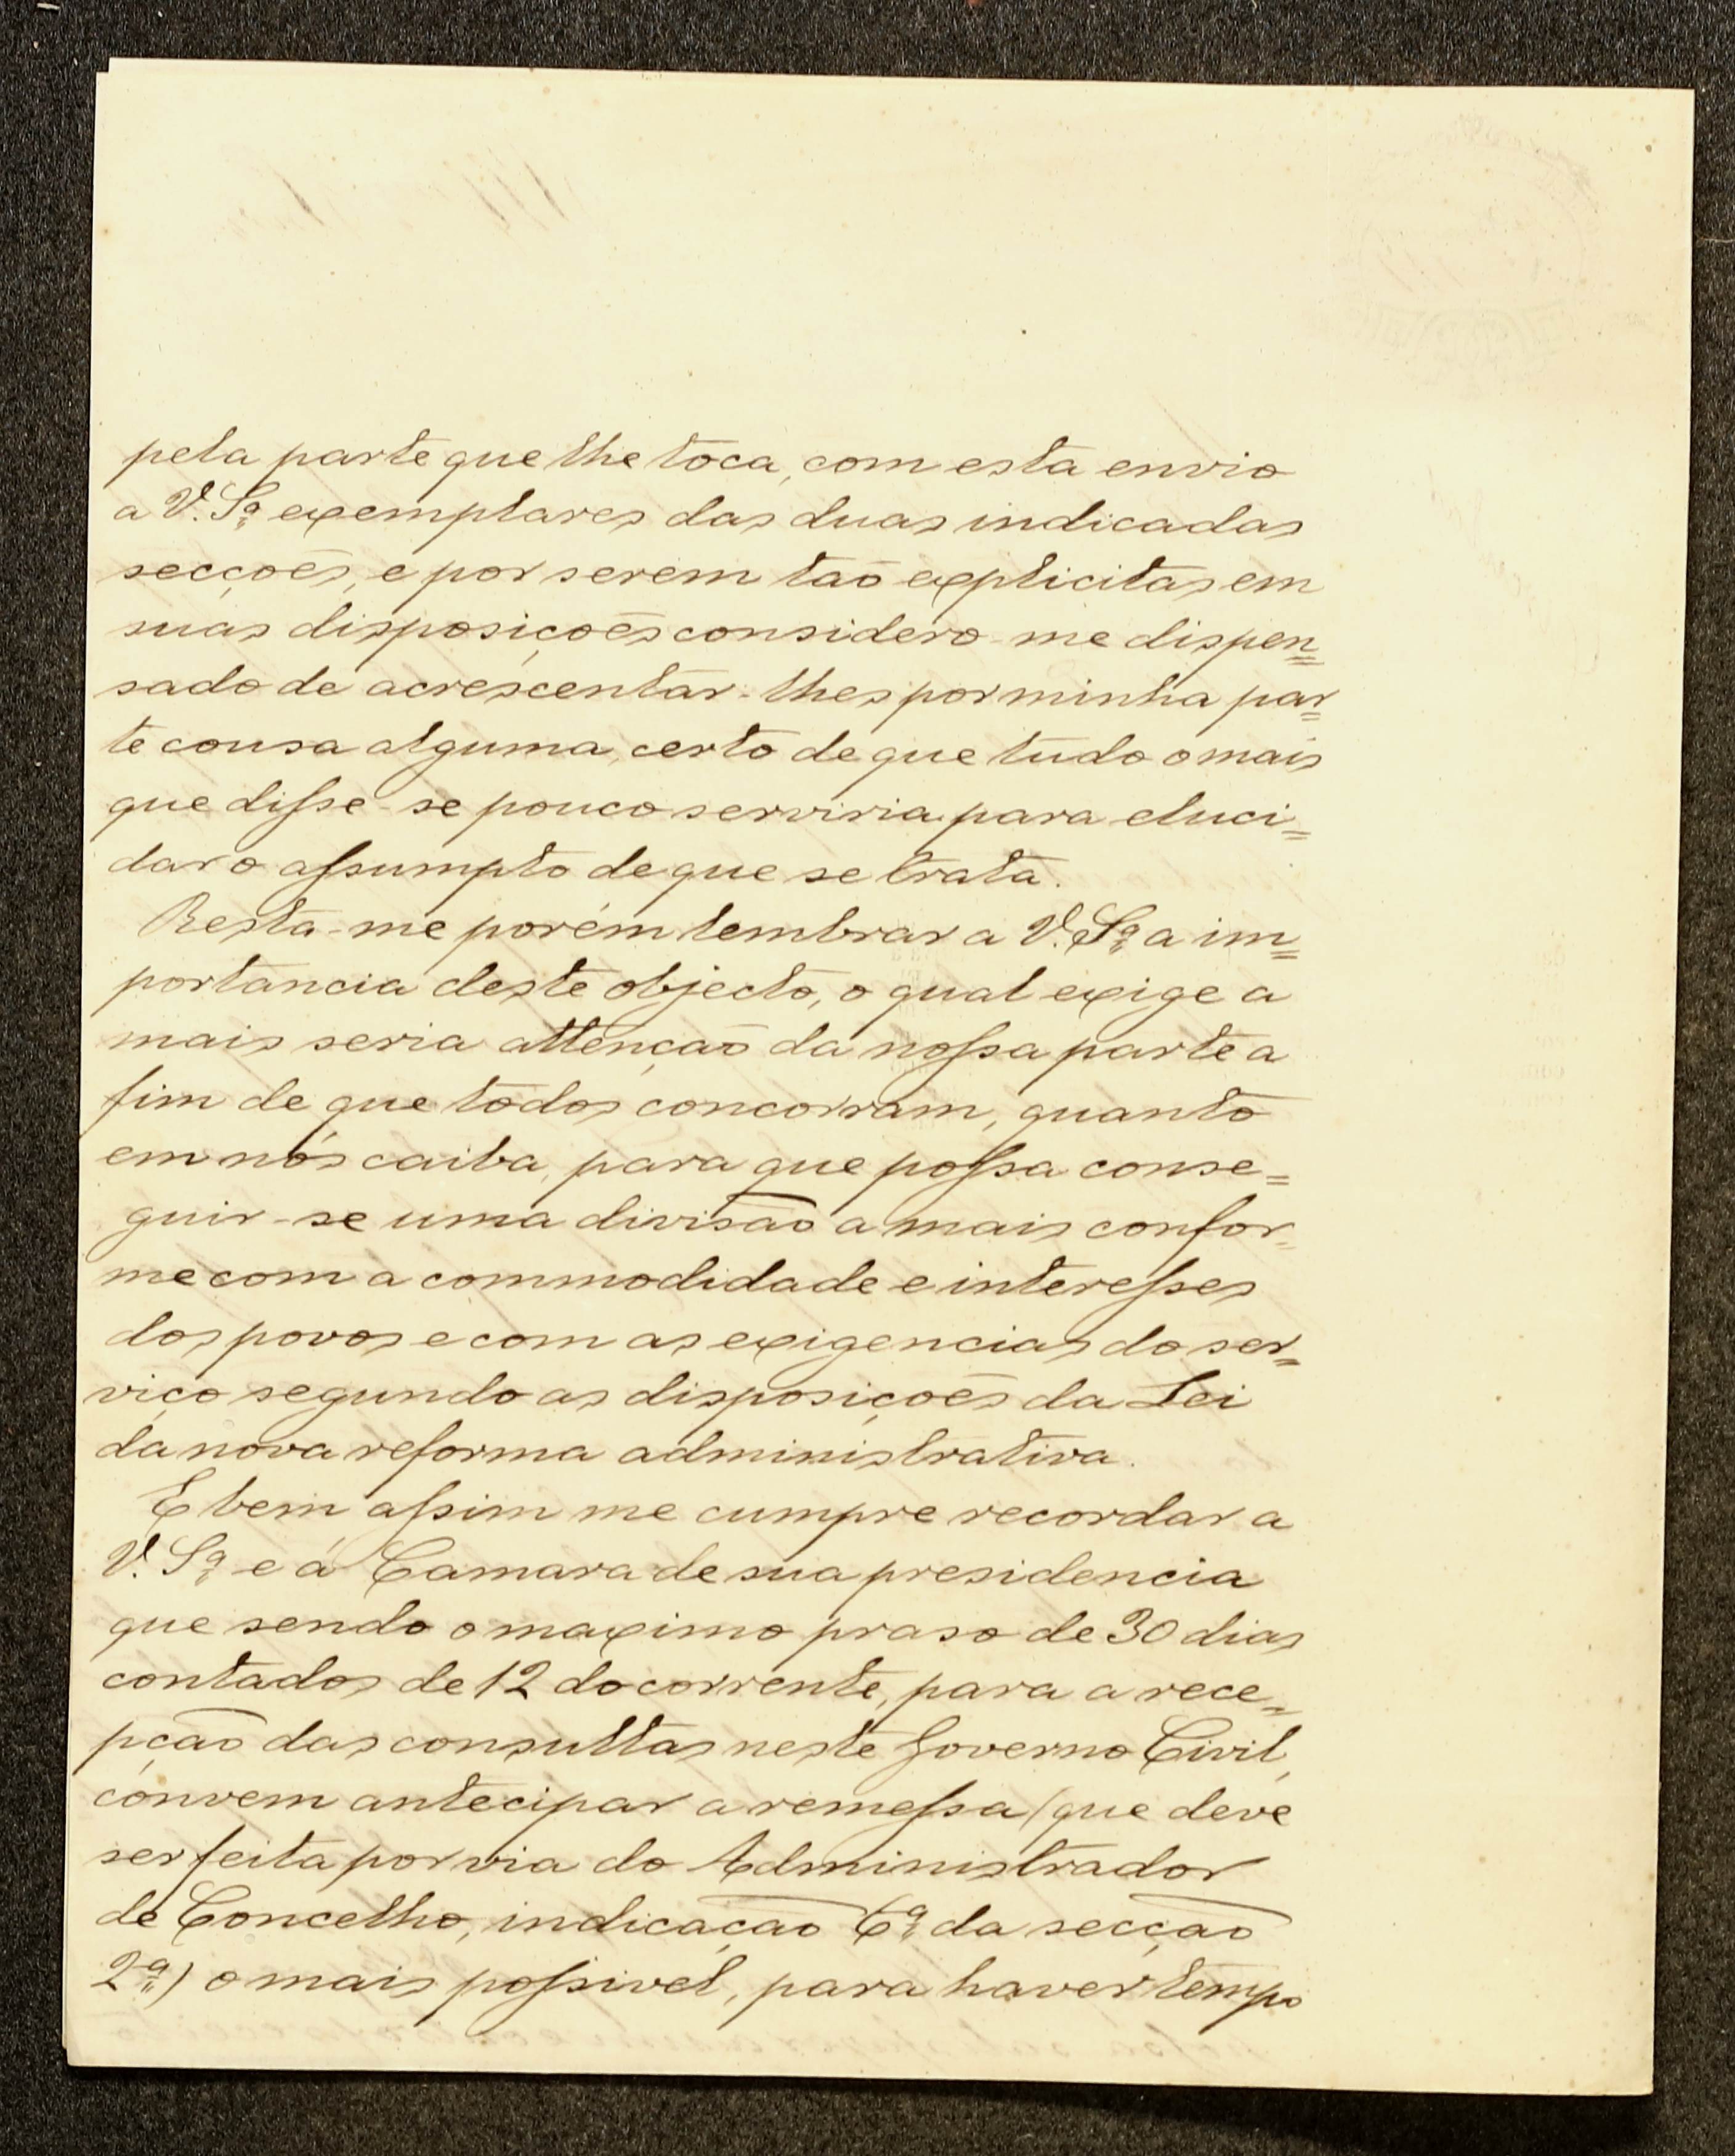 pela parte que lhe toca, com esta envio
a V. Sª exemplares das duas indicadas
secções, e por serem tão explicitas em
suas disposições considero-me dispen=
sado de acrescentar-lhes por minha par=
te cousa alguma, certo de que tudo o mais
que disse-se pouco serviria para eluci=
dar o assumpto de que se trata.
Resta-me porém lembrar a V. Sª a im=
portancia deste objecto, o qual exige a
mais seria attenção da nossa parte a
fim de que todos concorram, quanto
em nós caiba, para que possa conse=
guir-se uma divisão a mais confor=
me com a commodidade e interesses
dos povos e com as exigencias do ser=
viço segundo as disposições da Lei
da nova reforma administrativa.
E bem assim me cumpre recordar a
V. Sª e á Camara de sua presidencia
que sendo o maximo praso de 30 dias
contados de 12 do corrente, para a rece=
pção das consultas neste Governo Civil,
convem antecipar a remessa (que deve
ser feita por via do Administrador
de Concelho, indicação 6ª da secção
2ª) o mais possivel, para haver tempo